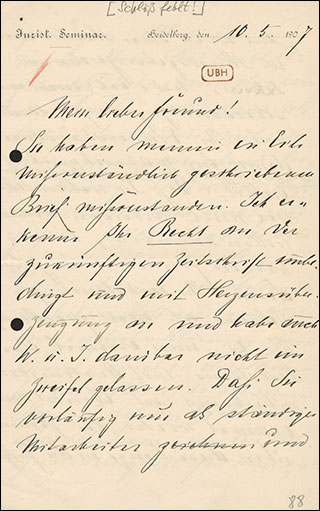 [Schluß fehlt!]
Jurist. Seminar. Heidelberg, den 10. 5. 1907
UBH
Mein lieber Freund!
Sie haben meinen in Eile
missverständlich geschriebenen
Brief missverstanden. Ich er-
kenne Ihr Recht an der
zukünftigen Zeitschrift unbe-
dingt und mit Herzensüber-
zeugung an und habe auch
W. u. J. darüber nicht im
Zweifel gelassen. Daß Sie
vorläufig nur als ständiger
Mitarbeiter zeichnen und
88